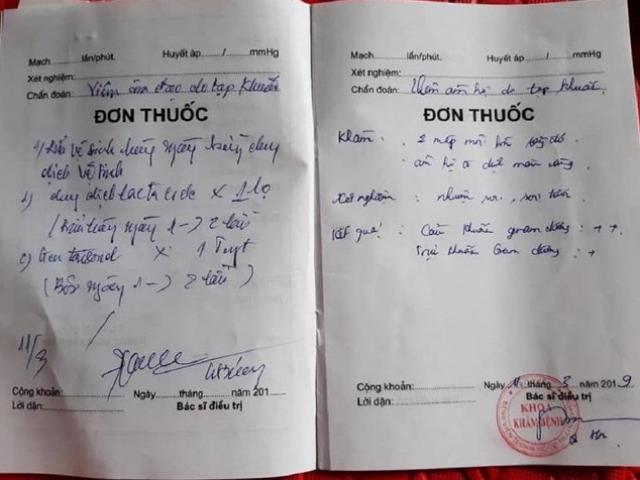 Mạch lần/phút. Huyết áp / mmHg
Xét nghiệm:
Chẩn đoán: Viêm âm đạo do tạp khuẩn
ĐƠN THUỐC
1/ vệ sinh hàng ngày dung
dịch vệ sinh
1) dung dịch lactacide x 1 lọ
( ngày 1 -> 2 lần
2) x 1 Tuýt
(Bôi ngày 1 -> 2 lần)
11/3
Cộng khoản: Ngày tháng năm 201
Lời dặn: Bác sĩ điều trị
Mạch lần/phút. Huyết áp / mmHg
Xét nghiệm:
Chẩn đoán: Viêm âm hộ do tạp khuẩn.
ĐƠN THUỐC
Khám : 2 mép môi đỏ
âm hộ có dịch màu vàng
Xét nghiệm : nhuộm soi, soi tươi
Kết quả : Cầu khuẩn gram dương : ++
Trực khuẩn Gram dương : +
Cộng khoản: Ngày 11 tháng 3 năm 2019
Lời dặn: Bác sĩ điều trị
KHOA
KHÁM BỆNH